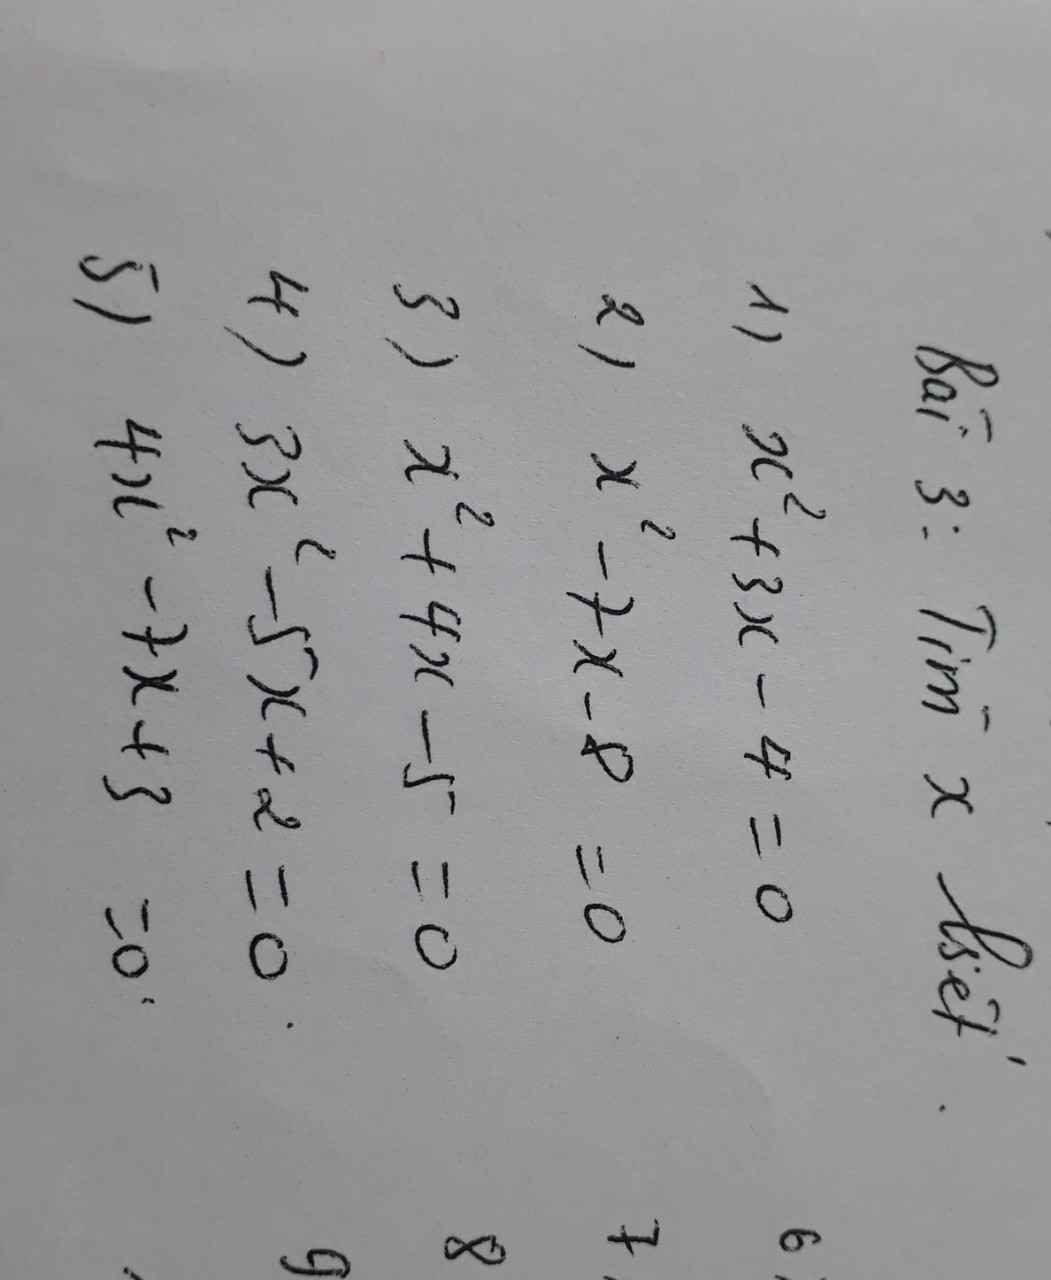 Bài 3: Tìm x biết.
1) x² + 3x - 4 = 0
2) x² - 7x - 8 = 0
3) x² + 4x - 5 = 0
4) 3x² - 5x + 2 = 0.
5) 4x² - 7x + 3 = 0.
6
7
8
9